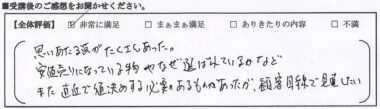 ■受講後のご感想をお聞かせください。
【全体評価】 ☑ 非常に満足 □ まぁまぁ満足 □ ありきたりの内容 □ 不満
思いあたる事がたくさんあった。
安値売りになっている物 やなぜ選ばれているかなど
また 直近で値決めする必要のあるものがあったが、顧客目線で見直したい